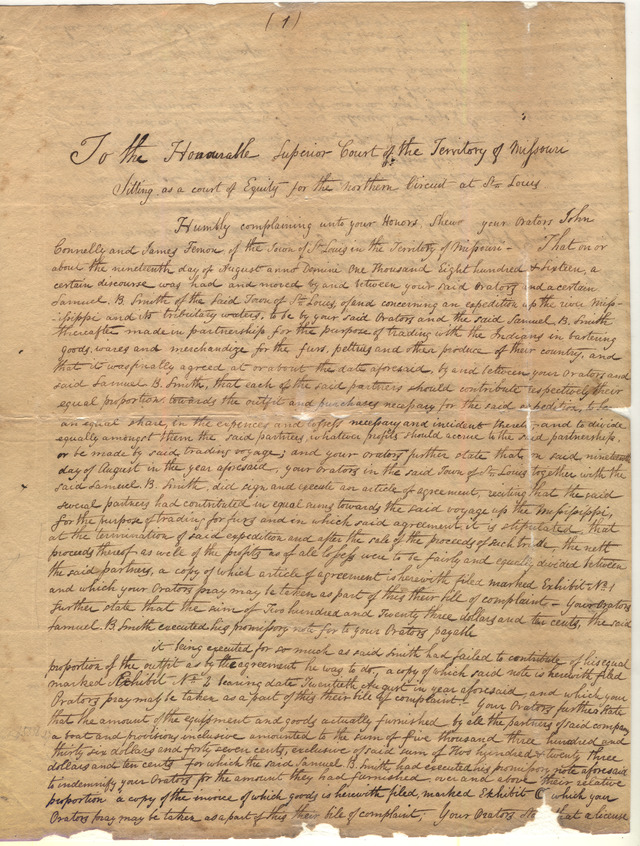 (1)
To the Honourable Superior Court of the Territory of Missouri
Sitting as a court of Equity for the Northern Circuit at St. Louis
Humbly complaining unto your Honors, Shew your Orators John
Connelly and James Ternon of the Town of St Louis in the Territory of Missouri - That on or
about the nineteenth day of August anno Domini One Thousand Eight hundred & Sixteen, a
certain discourse was had and moved by and between your said Orators and a certain
Samuel B. Smith of the said Town of St Louis, of and concerning an expedition up the river Miss-
issippi and its tributary waters, to be by your said Orators and the said Samuel B. Smith
thereafter made in partnership for the purpose of trading with the Indians in bartering
goods, wares and merchandize for the furs, peltries and other produce of their country, and
that it was finally agreed at or about the date aforesaid, by and between your Orators and
said Samuel B. Smith, that each of the said partners should contribute respectively their
equal proportion towards the outfit and purchases necessary for the said expedition, to bear
an equal share, in the expences and losses necessary and incident thereto, and to divide
equally amongst them the said partners, whatever profits should accrue to the said partnership,
or be made by said trading voyage; and your Orators further state that on said nineteenth
day of August in the year aforesaid, your Orators in the said Town of St. Louis together with the
said Samuel B. Smith, did sign and execute an article of agreement, reciting that the said
several partners had contributed in equal sums towards the said voyage up the Mississippi,
for the purpose of trading for furs and in which said agreement it is stipulated, that
at the termination of said expedition and after the sale of the proceeds of such trade, the nett
proceeds thereof as well of the profits as of all losses were to be fairly and equally divided between
the said partners, a copy of which article of agreement is herewith filed marked Exhibit No 1
and which your Orators pray may be taken as part of this their bill of complaint - Your Orators
further state that the sum of Two hundred and Twenty three dollars and ten cents, the said
Samuel B Smith executed his promissory note for to your Orators payable
it being executed for so much as said Smith had failed to contribute of his equal
proportion of the outfit as by the agreement he was to do, a copy of which said note is herewith filed
marked Exhibit No bearing date Twentieth August in year aforesaid, and which your
Orators pray may be taken as a part of this their bill of complaint. Your Orators further state
that the amount of the equipment and goods actually furnished by all the partners of said company
a boat and provisions inclusive amounted to the sum of five thousand three hundred and
thirty six dollars and forty seven cents, exclusive of said sum of Two hundred & twenty three
dollars and ten cents for which the said Samuel B. Smith had executed his promissory note aforesaid
to indemnify your Orators for the amount they had furnished over and above their relative
proportion a copy of the invoice of which goods is herewith filed marked Exhibit C which your
Orators pray may be taken as a part of this their bill of complaint, Your Orators that a license